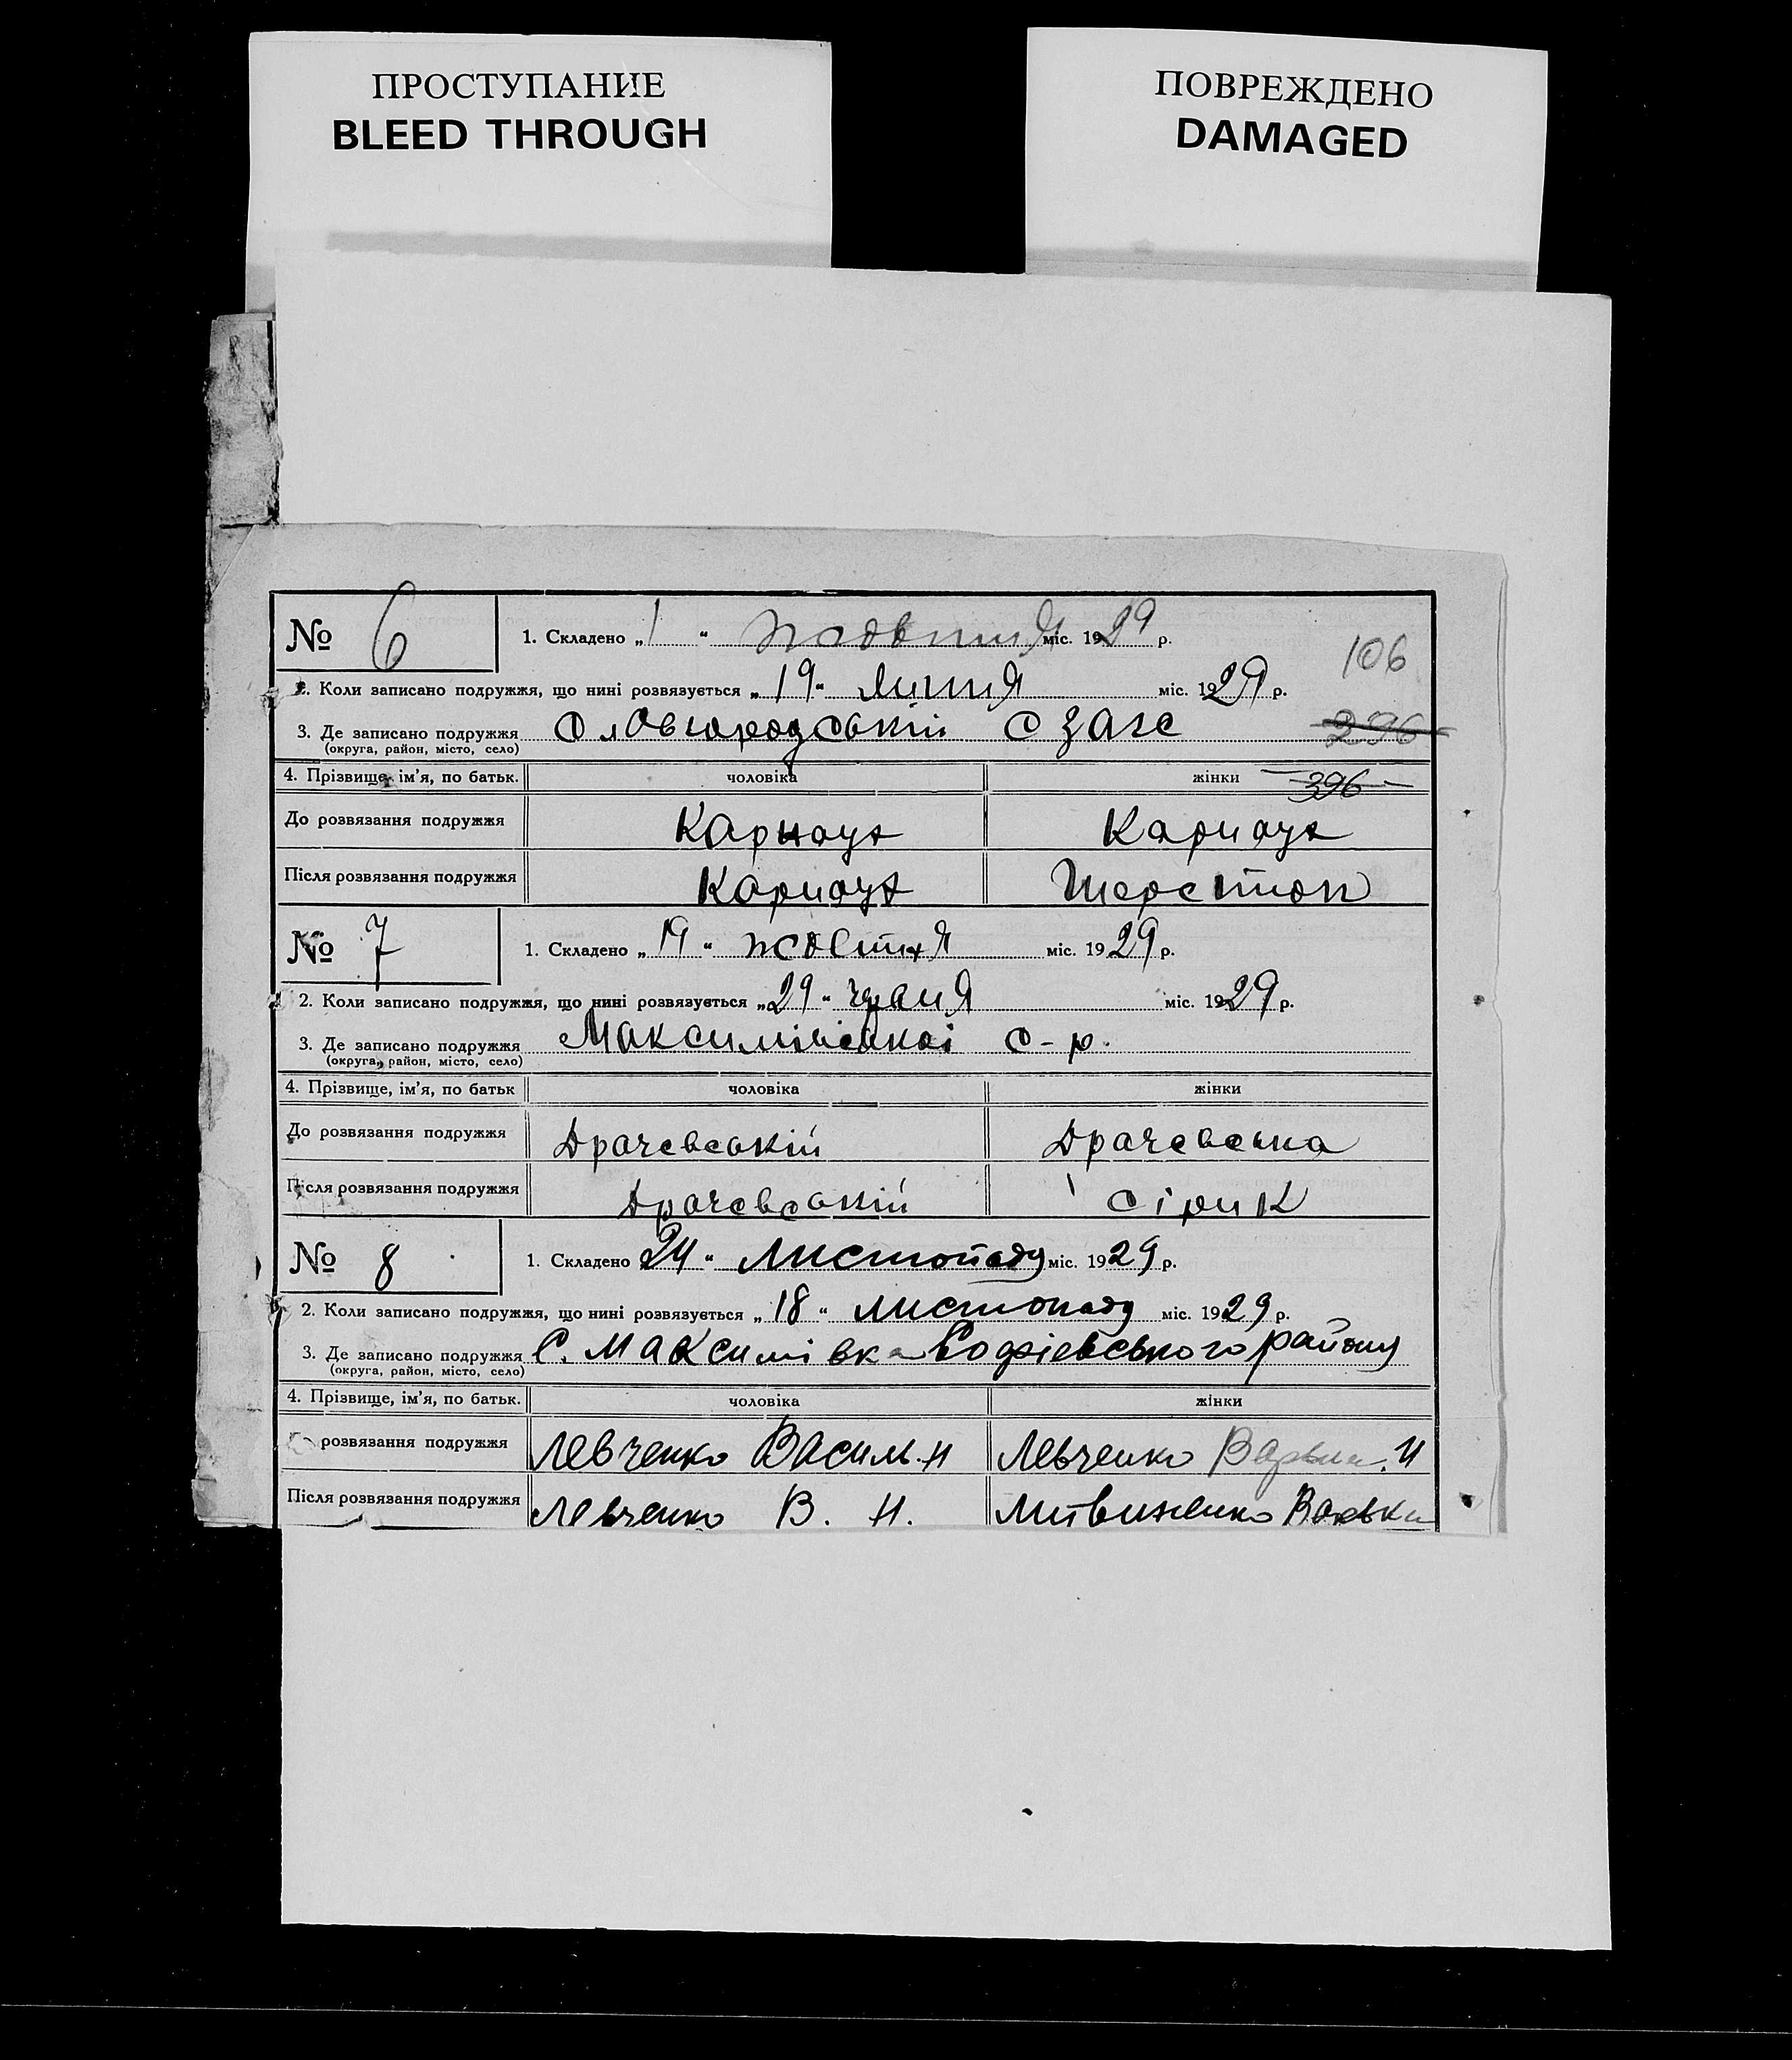 ПРОСТУПАНИЕ
BLEED THROUGH
ПОВРЕЖДЕНО
DAMAGED
№ 6
1. Складено „1“ жовтня міс. 1929 р.
106
2. Коли записано подружжя, що нині розвязується „19“ липня міс. 1929 р.
3. Де записано подружжя сзагс
296
(округа, район, місто, село)
4. Прізвище, ім'я, по батьк. чоловіка жінки 396
До розвязання подружжя Карнаух Карнаух
Після розвязання подружжя Карнаух Шерстюк
№ 7
1. Складено „19“ жовтня міс. 1929 р.
2. Коли записано подружжя, що нині розвязується „29“ червня міс. 1929 р.
3. Де записано подружжя с-р.
(округа, район, місто, село)
4. Прізвище, ім'я, по батьк чоловіка жінки
До розвязання подружжя Драчевській Драчевська
Після розвязання подружжя Драчевській Сірик
№ 8
1. Складено 24“ листопаду міс. 1929 р.
2. Коли записано подружжя, що нині розвязується „18“ листопаду міс. 1929 р.
3. Де записано подружжя С. Максимівка Софіевського району
(округа, район, місто, село)
4. Прізвище, ім'я, по батьк. чоловіка жінки
розвязання подружжя Левченко Василь. И Левченко Варька. И
Після розвязання подружжя Левченко В. И. Литвиненко Варька